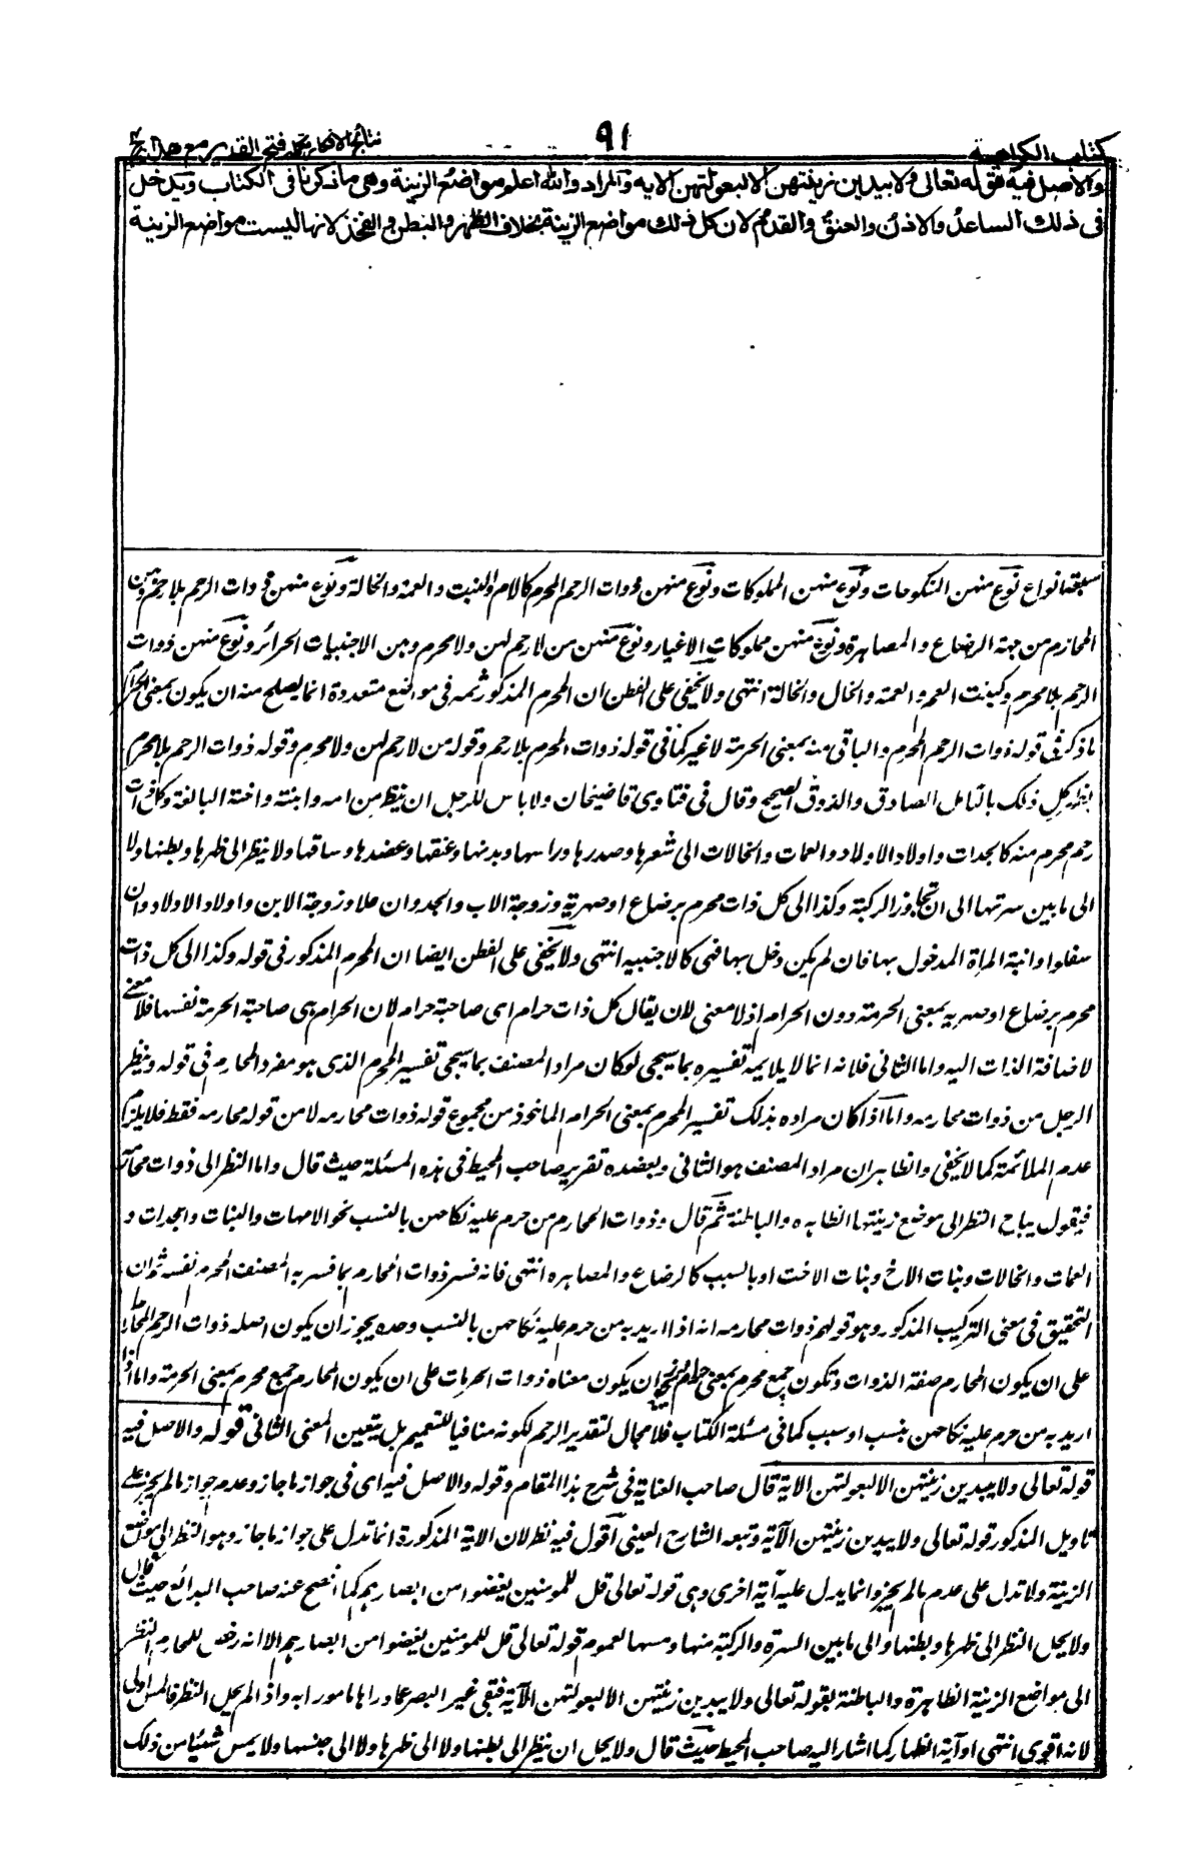 كتاب الكراهية
٩١
نتائج الافكار تكملہ فتح القدير مع هدايہ ج ٤
والاصل فيه قوله تعالى ولا يبدين زينتهن الا لبعولتهن الاية والمراد والله اعلم مواضع الزينة وهى ما ذكرنا فى الكتاب ويدخل
فى ذلك الساعد والاذن والعنق والقدم لان كل ذلك مواضع الزينة بخلاف الظهر والبطن والفخذ لانها ليست مواضع الزينة
سبعة انواع نوع منهن المنكوحات ونوع منهن المملوكات ونوع منهن ذوات الرحم المحرم كالام والبنت والعمة والخالة ونوع منهن ذوات الرحم بلا رحم وهن
المحارم من جهة الرضاع والمصاهرة ونوع منهن مملوكات الاغيار ونوع منهن من لا رحم لهن ولا محرم وهن الاجنبيات الحرائر ونوع منهن ذوات
الرحم بلا محرم وكبنت العم والعمة والخال والخالة انتهى ولا يخفى على الفطن ان المحرم المذكور ثمه فى مواضع متعددة انما يصلح منه ان يكون بمعنى الحرام
ما ذكر فى قوله ذوات الرحم المحرم والباقى منه بمعنى الحرمة لا غير كما فى قوله ذوات المحرم بلا رحم وقوله من لا رحم لهن ولا محرم وقوله ذوات الرحم بلا محرم
يظهر كل ذلك بالتامل الصادق والذوق الصحيح وقال فى فتاوى قاضيخان ولا باس للرجل ان ينظر من امه وابنته واخته البالغة وكل ذات
رحم محرم منه كالجدات واولاد الاولاد والعمات والخالات الى شعرها وصدرها وراسها وبدنها وعنقها وعضدها وساقها ولا ينظر الى ظهرها وبطنها ولا
الى ما بين سرتها الى ان تجاوز الركبة وكذا الى كل ذات محرم برضاع او صهرية وزوجة الاب والجد وان علا وزوجة الابن واولاد الاولاد وان
سفلوا وابنة المراة المدخول بها فان لم يكن دخل بها فهى كالاجنبيه انتهى ولا يخفى على الفطن ايضا ان المحرم المذكور فى قوله وكذا الى كل ذات
محرم برضاع او صهريه بمعنى الحرمة دون الحرام اذ لا معنى لان يقال كل ذات حرام اى صاحبة حرام لان الحرام هى صاحبة الحرمة نفسها فلا معنى
لاضافة الذات اليه واما الثانى فلانه انما لا يلايمه تفسيره بما سيجى لو كان مراد المصنف بما سيجى تفسير المحرم الذى هو مفرد المحارم فى قوله وينظر
الرجل من ذوات محارمه واما اذا كان مراده بذلك تفسير المحرم بمعنى الحرام الماخوذ من مجموع قوله ذوات محارمه لا من قوله محارمه فقط فلا يلزم
عدم الملائمة كما لا يخفى والظاهر ان مراد المصنف هو الثانى ويعضده تقرير صاحب المحيط فى هذه المسئلة حيث قال واما النظر الى ذوات محارمه
فيقول يباح النظر الى موضع زينتها الظاهره والباطنة ثم قال وذوات المحارم من حرم عليه نكاحهن بالنسب نحو الامهات والبنات والجدات و
العمات والخالات وبنات الاخ وبنات الاخت او بالسبب كالرضاع والمصاهره انتهى فانه فسر ذوات المحارم بما فسر به المصنف المحرم نفسه ثم ان
التحقيق فى معنى التركيب المذكور وهو قولهم ذوات محارمه انه اذا اريد به من حرم عليه نكاحهن بالنسب وحده يجوز ان يكون اصله ذوات الرحم المحارم
على ان يكون المحارم صفة الذوات وتكون جمع محرم بمعنى حرام ويجوز ان يكون معناه ذوات الحرمات على ان يكون المحارم جمع محرم بمعنى الحرمة واما اذا
اريد به من حرم عليه نكاحهن بنسب او سبب كما فى مسئلة الكتاب فلا مجال لتقدير الرحم لكونه منافيا للتعميم بل يتعين المعنى الثانى قوله والاصل فيه
قوله تعالى ولا يبدين زينتهن الا لبعولتهن الاية قال صاحب العناية فى شرح هذا المقام وقوله والاصل فيه اى فى جواز ما جاز وعدم جواز ما لم يجز على
تاويل المذكور قوله تعالى ولا يبدين زينتهن الآية وتبعه الشارح العينى اقول فيه نظر لان الاية المذكورة انما تدل على جواز ما جاز وهو النظر الى مواضع
الزينة ولا تدل على عدم ما لم يجز وانما يدل عليه آية اخرى وهى قوله تعالى قل للمومنين يغضوا من ابصارهم كما افصح عنه صاحب البدائع حيث قال
ولا يحل النظر الى ظهرها وبطنها والى ما بين السرة والركبة منها ومسها لعموم قوله تعالى قل للمومنين يغضوا من ابصارهم الا انه رخص للمحارم النظر
الى مواضع الزينة الظاهرة والباطنة بقوله تعالى ولا يبدين زينتهن الا لبعولتهن الآية فبقى غير البصر عما وراها مامورا به واذا لم يحل النظر فالمس اولى
لانه اقوى انتهى او آية الظهار كما اشار اليه صاحب المحيط حيث قال ولا يحل ان ينظر الى بطنها ولا الى ظهرها ولا الى جنبها ولا يمس شيئا من ذلك